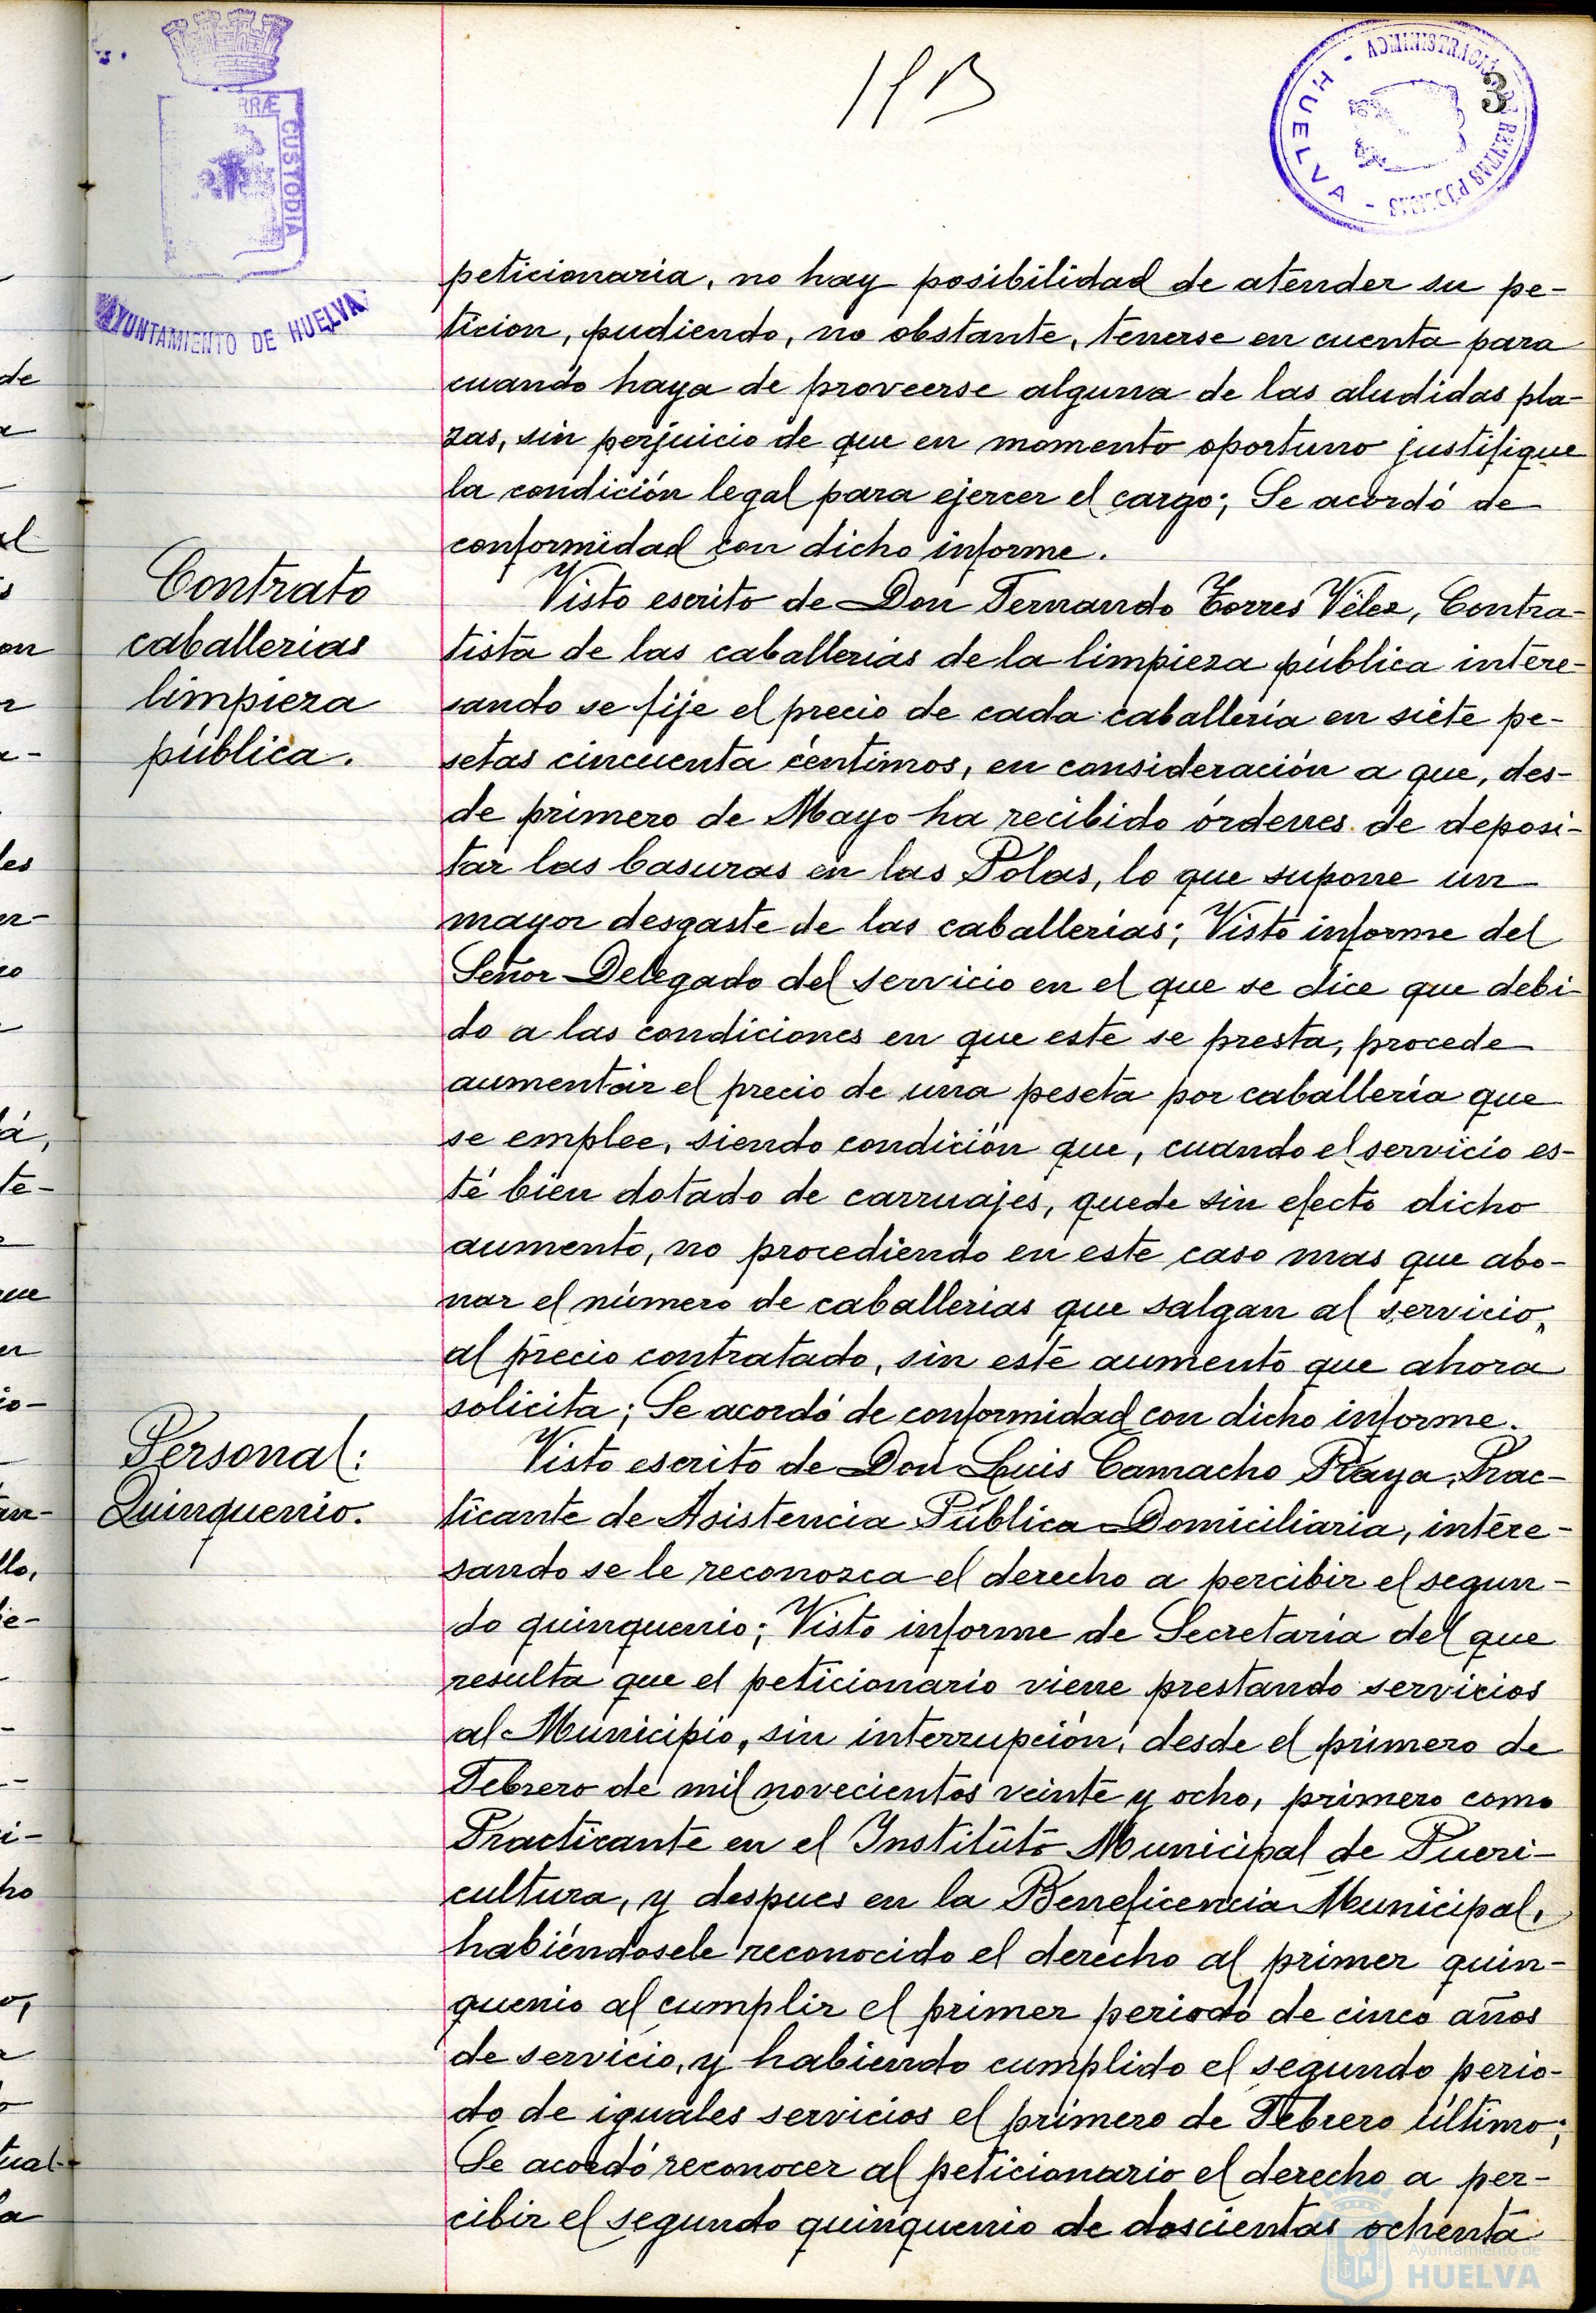 193
3
ADMINISTRACIÓN DE RENTAS PÚBLICAS
- HUELVA -
RRÆ CUSTODIA
AYUNTAMIENTO DE HUELVA
peticionaria, no hay posibilidad de atender su pe-
ticion, pudiendo, no obstante, tenerse en cuenta para
cuando haya de proveerse alguna de las aludidas pla-
zas, sin perjuicio de que en momento oportuno justifique
la condición legal para ejercer el cargo; Se acordó de
conformidad con dicho informe.
Contrato
caballerias
limpieza
pública.
Visto escrito de Don Fernando Torres Vélez, Contra-
tista de las caballerias de la limpieza pública intere-
sando se fije el precio de cada caballería en siete pe-
setas cincuenta céntimos, en consideración a que, des-
de primero de Mayo ha recibido órdenes de deposi-
tar las basuras en las Polas, lo que supone un
mayor desgaste de las caballerías; Visto informe del
Señor Delegado del servicio en el que se dice que debi-
do a las condiciones en que este se presta, procede
aumentar el precio de una peseta por caballería que
se emplee, siendo condición que, cuando el servicio es-
té bien dotado de carruajes, quede sin efecto dicho
aumento, no procediendo en este caso mas que abo-
nar el número de caballerias que salgan al servicio,
al precio contratado, sin este aumento que ahora
solicita; Se acordó de conformidad con dicho informe.
Personal:
Quinquenio.
Visto escrito de Don Luis Camacho Raya, Prac-
ticante de Asistencia Pública Domiciliaria, intere-
sando se le reconozca el derecho a percibir el segun-
do quinquenio; Visto informe de Secretaría del que
resulta que el peticionario viene prestando servicios
al Municipio, sin interrupción, desde el primero de
Febrero de mil novecientos veinte y ocho, primero como
Practicante en el Instituto Municipal de Pueri-
cultura, y despues en la Beneficencia Municipal,
habiéndosele reconocido el derecho al primer quin-
quenio al cumplir el primer periodo de cinco años
de servicio, y habiendo cumplido el segundo perio-
do de iguales servicios el primero de Febrero último;
Se acordó reconocer al peticionario el derecho a per-
cibir el segundo quinquenio de doscientas ochenta
Ayuntamiento de
HUELVA